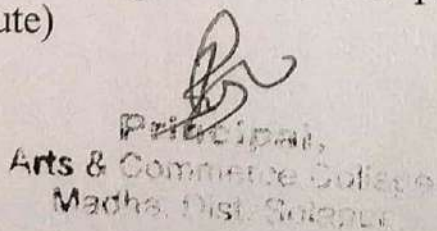 ute)
Principal,
Arts & Commerce College
Madha, Dist. Solapur